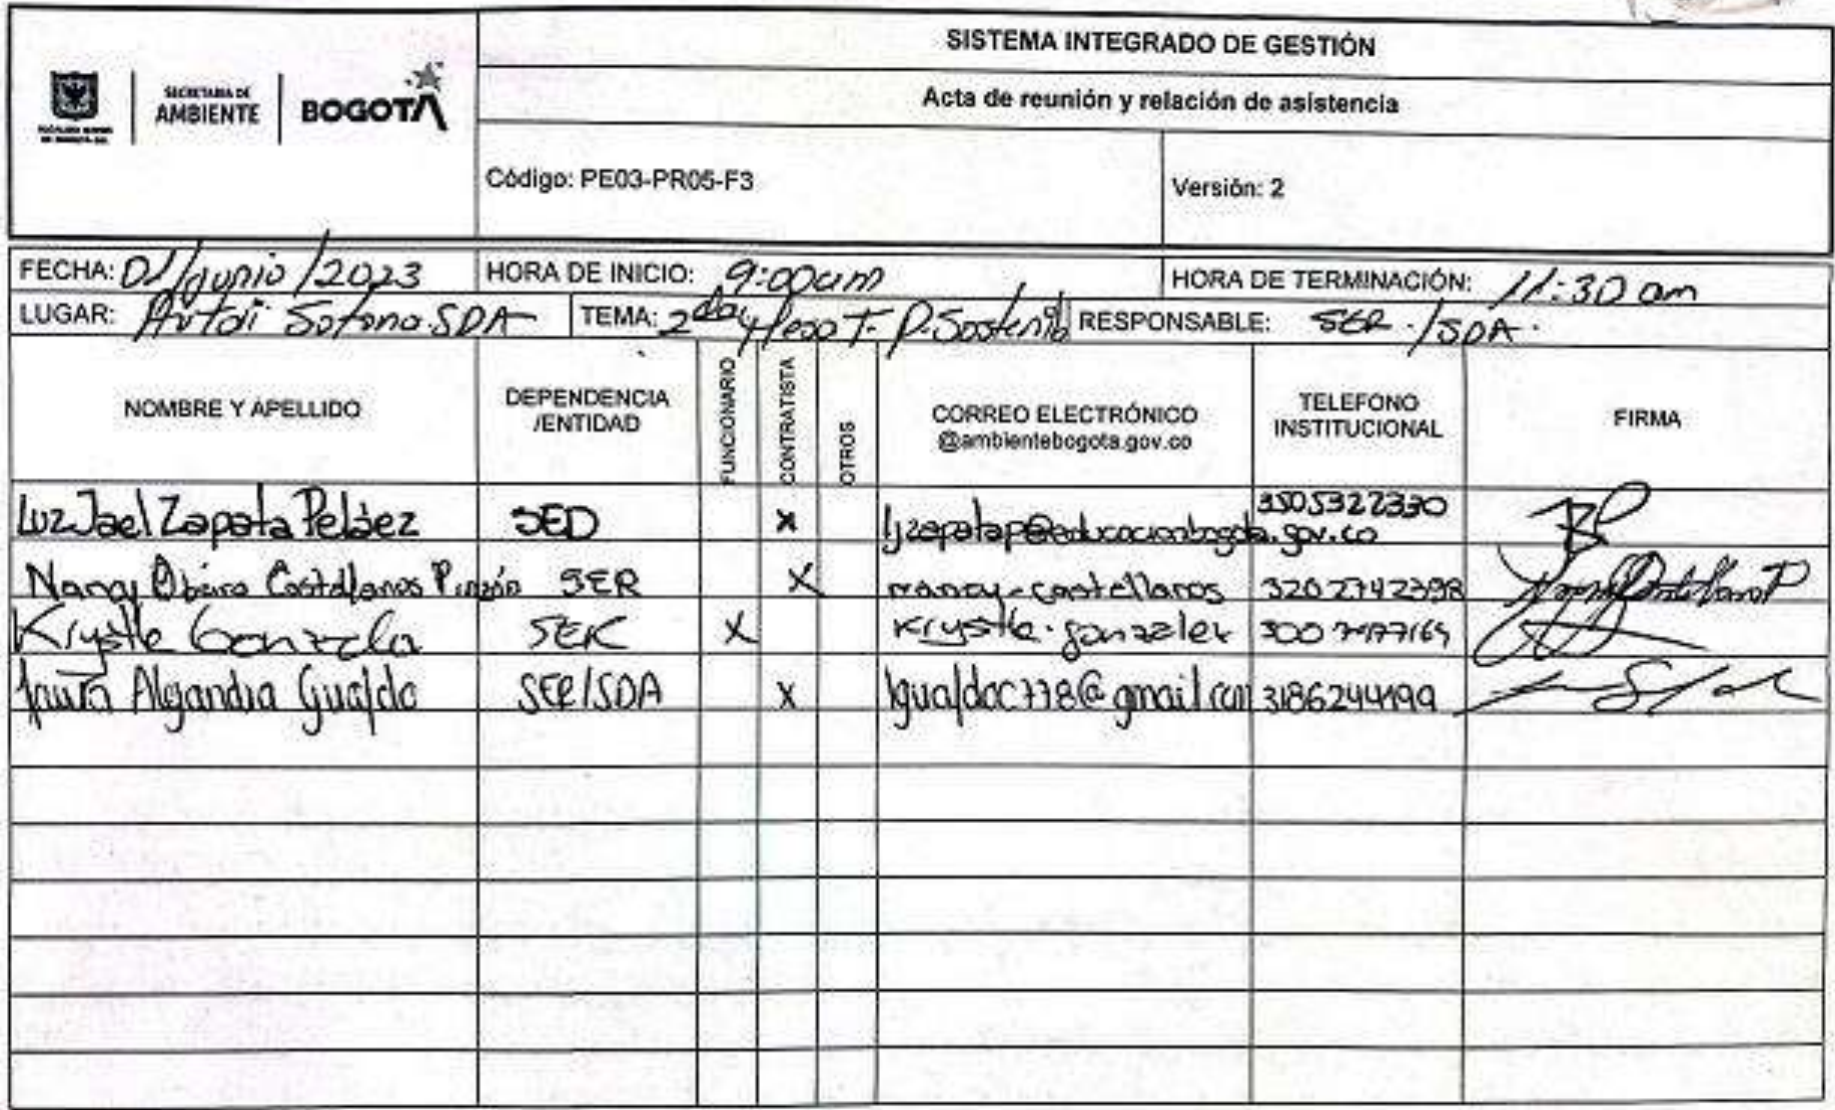 SISTEMA INTEGRADO DE GESTIÓN
SECRETARIA DE
AMBIENTE
BOGOTA
Acta de reunión y relación de asistencia
Código: PE03-PR05-F3
Versión: 2
FECHA: 01/junio/2023 HORA DE INICIO: 9:00am HORA DE TERMINACIÓN: 11:30 am
LUGAR: SDA TEMA: 2da RESPONSABLE: SER./SDA.
NOMBRE Y APELLIDO DEPENDENCIA /ENTIDAD FUNCIONARIO CONTRATISTA OTROS CORREO ELECTRÓNICO @ambientebogota.gov.co TELEFONO INSTITUCIONAL FIRMA
Luz Jael Zapata Peláez SED X ljzapatap@educacionbogota.gov.co 3505322330
Nancy Castellanos Pinzón SER X nancy.castellanos 3202742398
Krystle SER X Krystle.gonzalez
Laura Alejandra Gualdo SER/SDA X lgualdoc778@gmail.com 3186244199